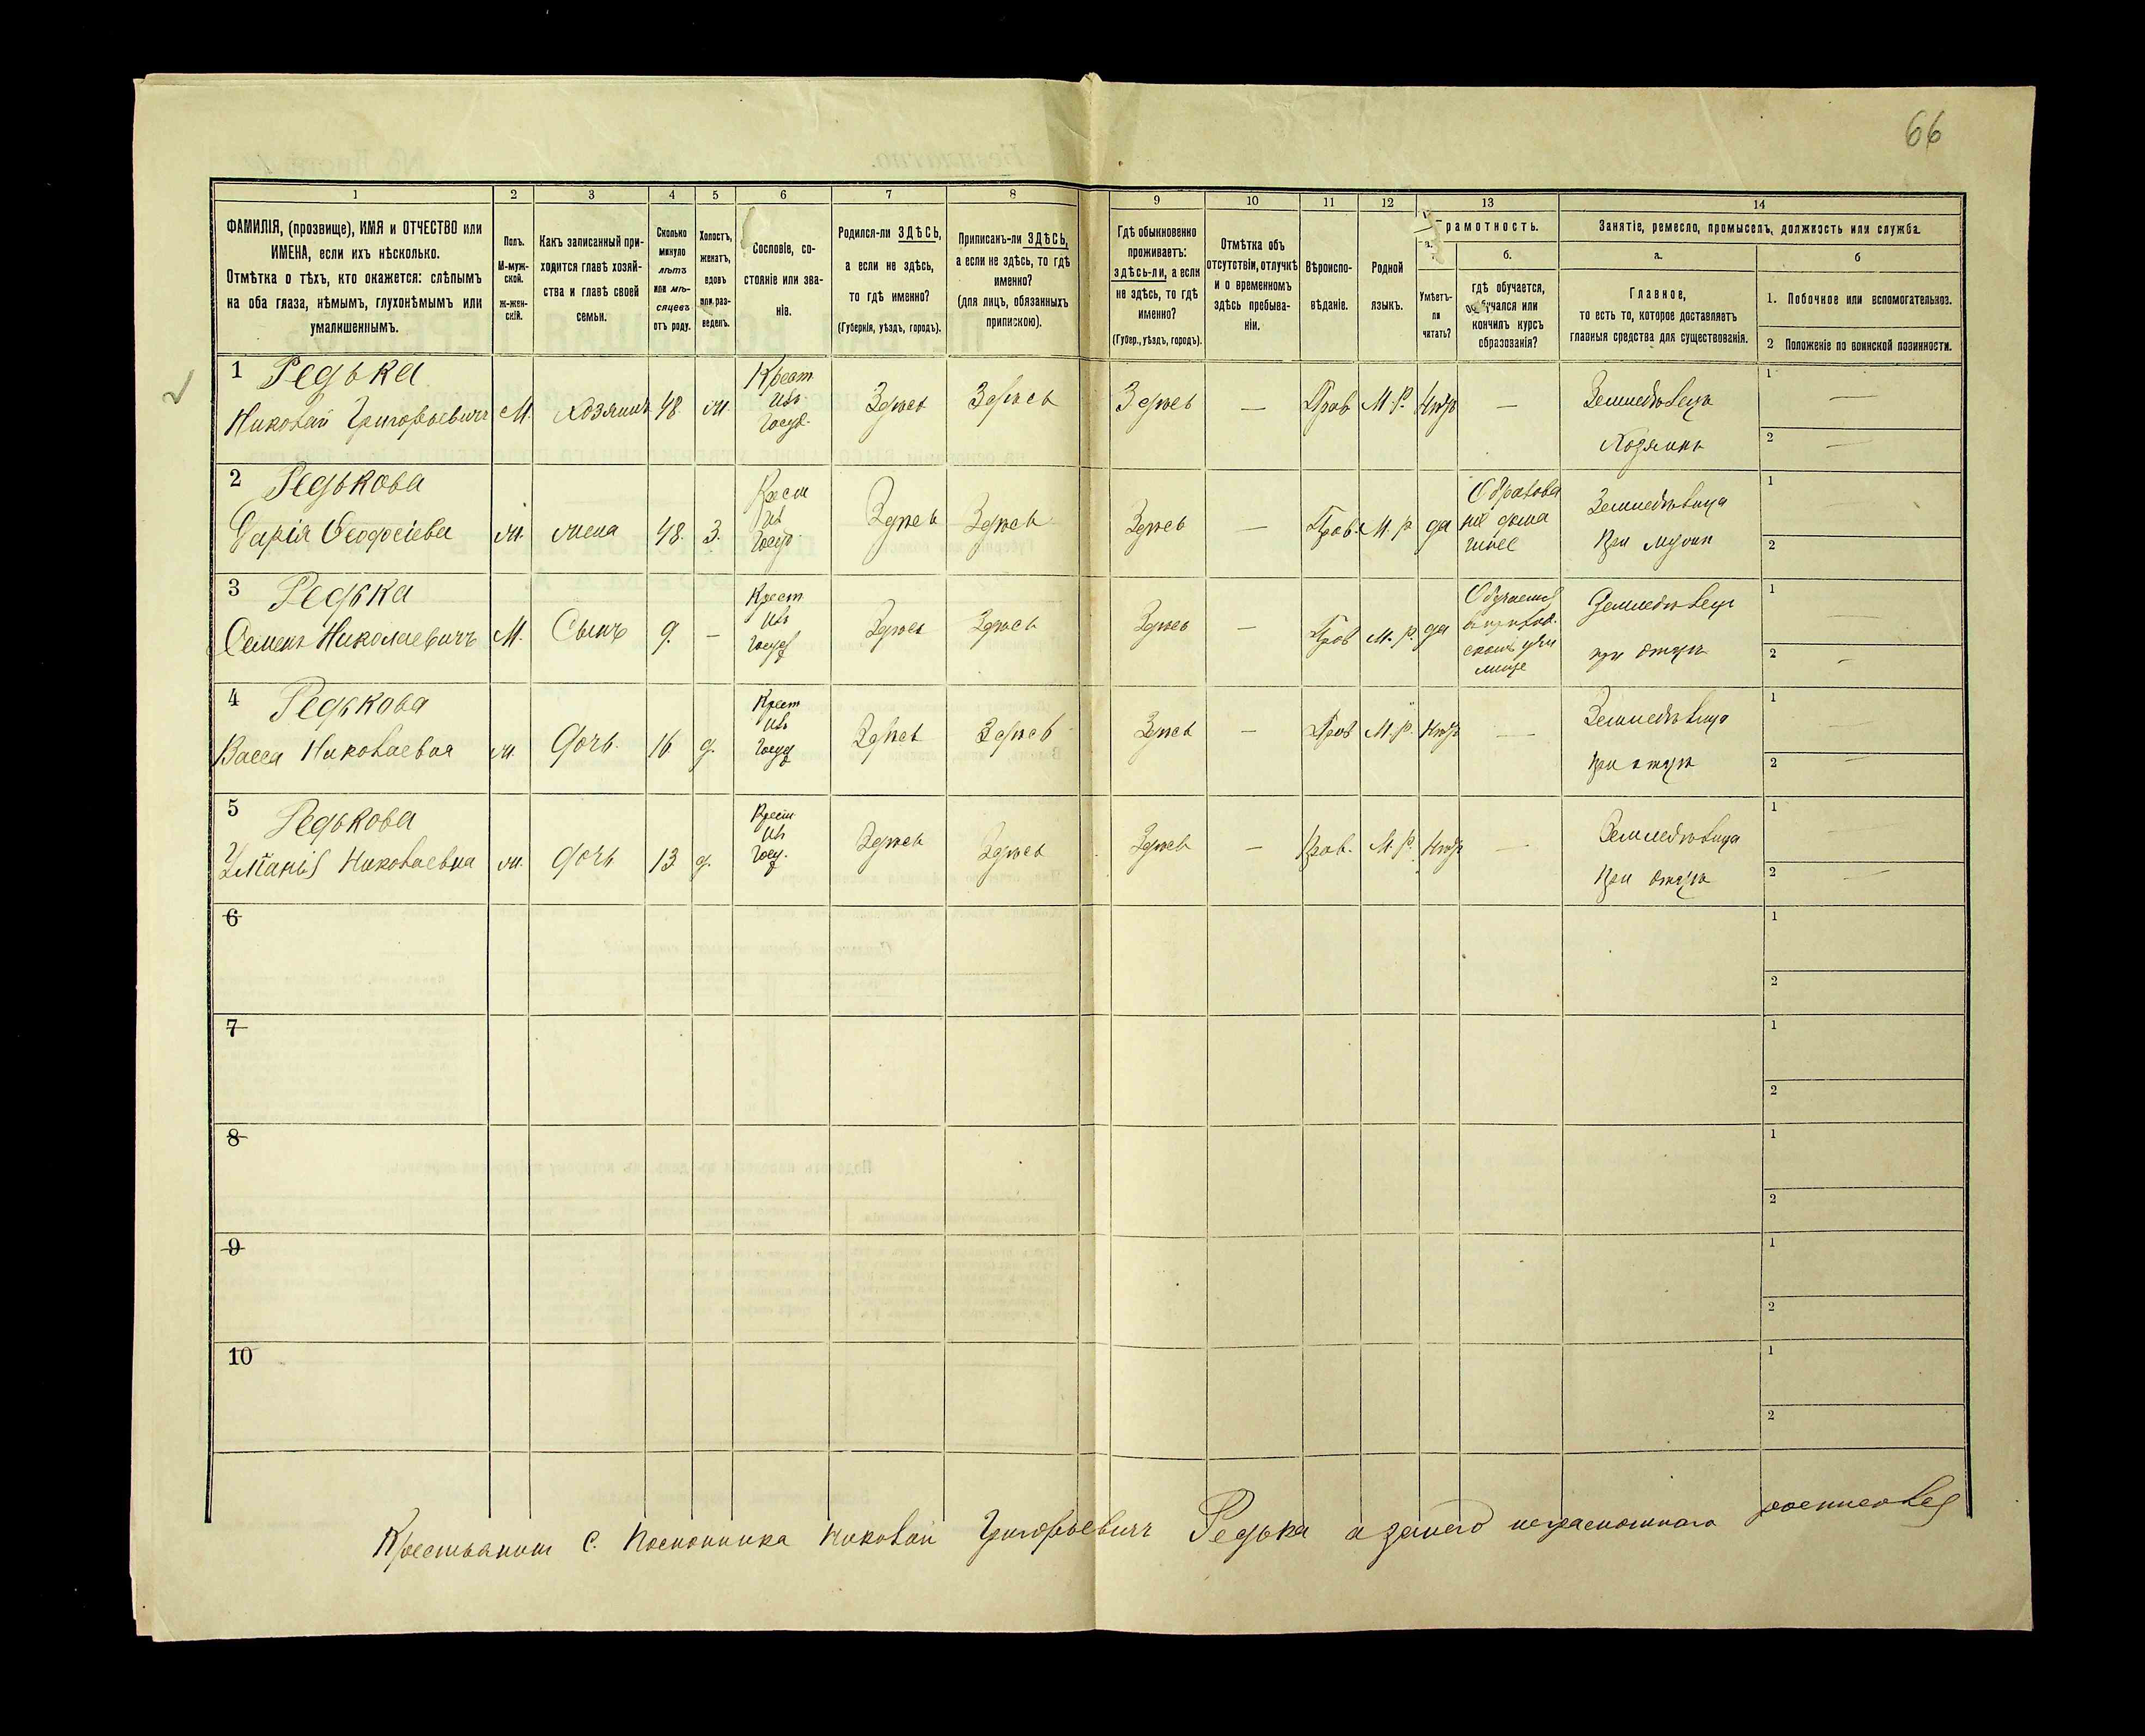 66
1 2 3 4 5 6 7 8 9 10 11 12 13 14
ФАМИЛІЯ, (прозвище), ИМЯ и ОТЧЕСТВО или
ИМЕНА, если ихъ нѣсколько.
Отмѣтка о тѣхъ, кто окажется: слѣпымъ
на оба глаза, нѣмымъ, глухонѣмымъ или
умалишеннымъ.
Полъ.
М-муж-
ской.
ж-жен-
скій.
Какъ записанный при-
ходится главѣ хозяй-
ства и главѣ своей
семьи.
Сколько
минуло
лѣтъ
или мѣ-
сяцевъ
отъ роду.
Холостъ,
женатъ,
вдовъ
или раз-
веденъ.
Сословіе, со-
стояніе или зва-
ніе.
Родился-ли ЗДѢСЬ,
а если не здѣсь,
то гдѣ именно?
(Губернія, уѣздъ, городъ).
Приписанъ-ли ЗДѢСЬ,
а если не здѣсь, то гдѣ
именно?
(для лицъ, обязанныхъ
припискою).
Гдѣ обыкновенно
проживаетъ:
здѣсь-ли, а если
не здѣсь, то гдѣ
именно?
(Губер., уѣздъ, городъ).
Отмѣтка объ
отсутствіи, отлучкѣ
и о временномъ
здѣсь пребыва-
ніи.
Вѣроиспо-
вѣданіе.
Родной
языкъ.
Грамотность.
а.
Умѣетъ-
ли
читать?
б.
гдѣ обучается,
обучался или
кончилъ курсъ
образованія?
Занятіе, ремесло, промыселъ, должность или служба.
а.
Главное,
то есть то, которое доставляетъ
главныя средства для существованія.
б
1. Побочное или вспомогательное.
2 Положеніе по воинской повинности.
1 Редька
Николай Григорьевичъ М. Хозяинъ 48 ж. Крест. изъ Госуд. Здѣсь Здѣсь Здѣсь — Прав М.Р. Нѣтъ — Земледѣлецъ Хозяинъ 1 — 2 —
2 Редькова
Дарія Ѳеодосіева ж. жена 48. З. Крест изъ Госуд. Здѣсь Здѣсь Здѣсь — Прав. М. р да Земледѣлица при мужи 1 — 2 —
3 Редька
Семенъ Николаевичъ М. Сынъ 9. — Крест изъ Госуд Здѣсь Здѣсь Здѣсь — Прав М. р. да Обучается Земледѣлецъ при отцѣ 1 — 2 —
4 Редькова
Васса Николаевна ж. дочь. 16 д. Крест изъ Госуд Здѣсь Здѣсь Здѣсь — Прав М.Р. Нѣтъ — Земледѣлица при отцѣ 1 — 2 —
5 Редькова
Николаевна ж. дочь 13 д. Крест изъ Госуд. Здѣсь Здѣсь Здѣсь — Прав. М.Р. Нѣтъ — Земледѣлица При отцѣ 1 — 2 —
6 1
2
7 1
2
8 1
2
9 1
2
10 1
2
Крестьянинъ с. Николай Григорьевичъ Редька а за него неграмотнаго